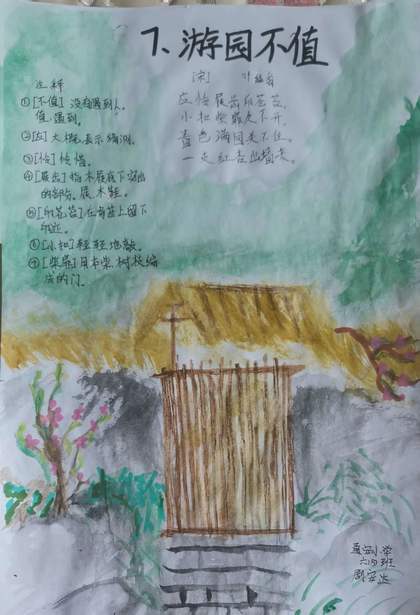 7、游园不值
[宋] 叶绍翁
应怜屐齿印苍苔,
小扣柴扉久不开。
春色满园关不住,
一支红杏出墙来。
注释
①[不值] 没有遇到人。
值,遇到。
②[应] 大概,表示猜测。
③[怜] 怜惜。
④[屐齿] 指木屐底下突出
的部分。屐,木鞋。
⑤[印苍苔] 在青苔上留下
印迹。
⑥[小扣] 轻轻地敲。
⑦[柴扉] 用木柴、树枝编
成的门。
小学
六四班